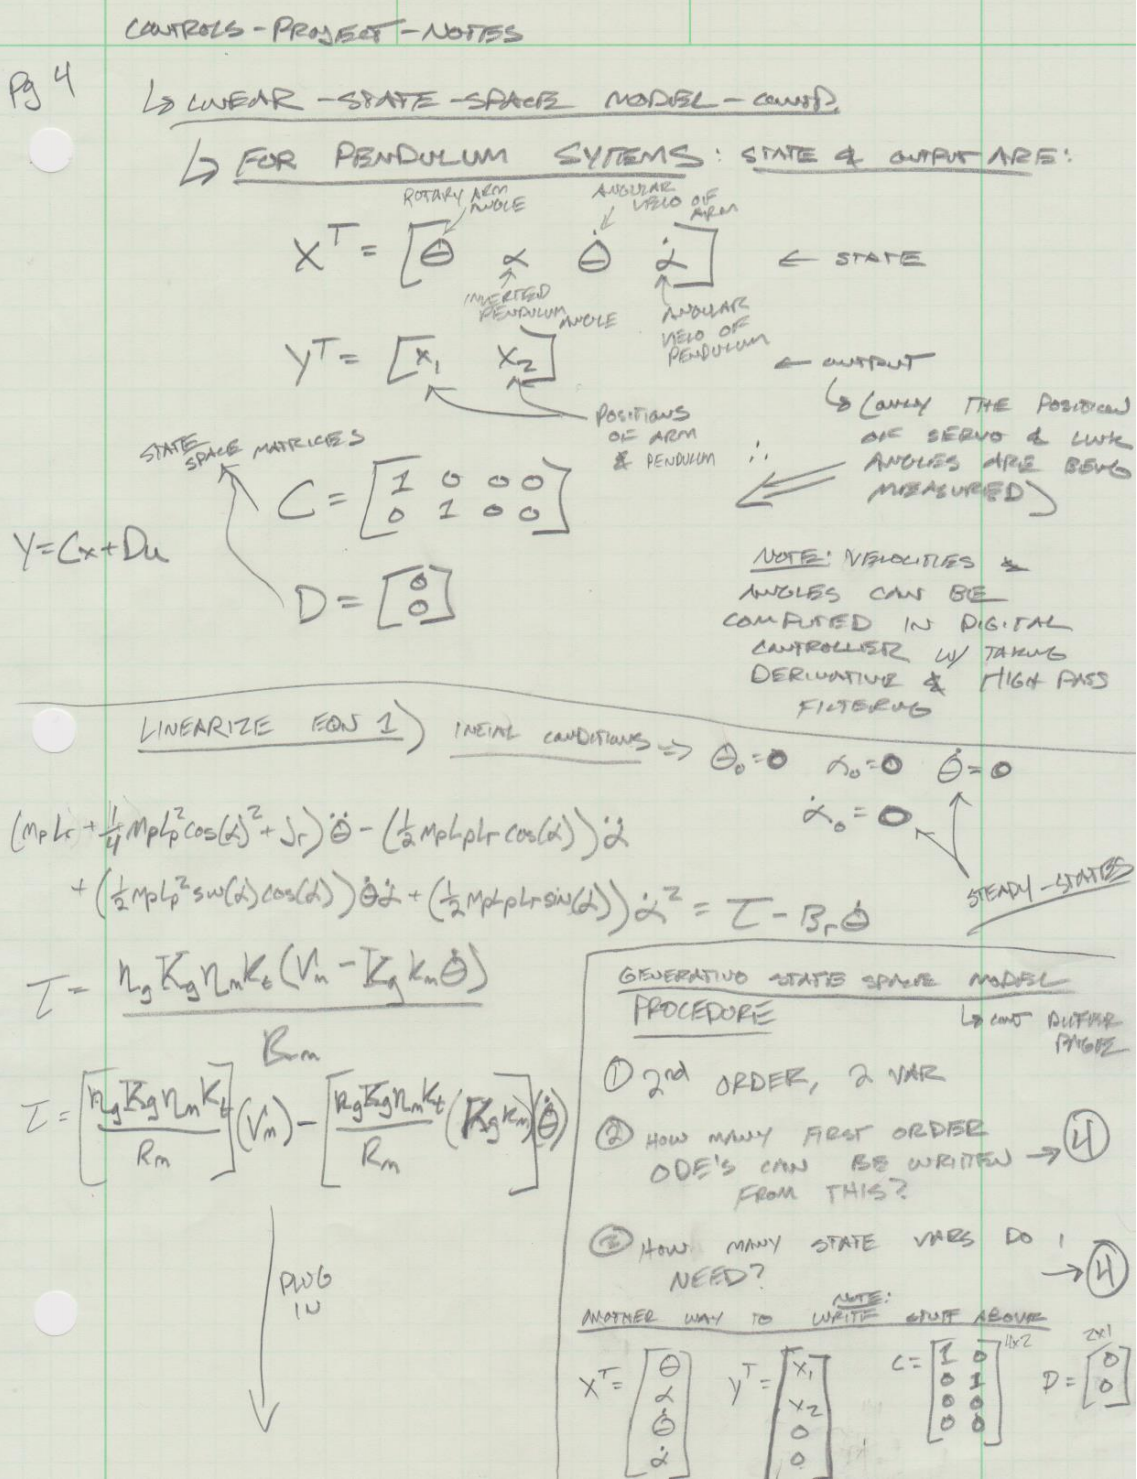 CONTROLS - PROJECT - NOTES
Pg 4
↳ LINEAR - STATE - SPACE MODEL - CONT'D.
↳ FOR PENDULUM SYTEMS: STATE & OUTPUT ARE:
ROTARY ARM ANGLE
ANGULAR VELO OF ARM
X^T = [θ α θ̇ α̇] ← STATE
INVERTED PENDULUM ANGLE
ANGULAR VELO OF PENDULUM
Y^T = [x₁ x₂] ← OUTPUT
POSITIONS OF ARM & PENDULUM
↳ (ONLY THE POSITION
OF SERVO & LINK
ANGLES ARE BEING
MEASURED)
∴
STATE SPACE MATRICES
C = [1 0 0 0
0 1 0 0]
Y = Cx + Du
D = [0
0]
NOTE: VELOCITIES &
ANGLES CAN BE
COMPUTED IN DIGITAL
CONTROLLER W/ TAKING
DERIVATIVE & HIGH PASS
FILTERING
LINEARIZE EQN 1) INITIAL CONDITIONS => θ₀=0 α₀=0 θ̇=0
α̇₀=0
STEADY-STATES
(MpLr + 1/4 MpLp² cos(α)² + Jr)θ̈ - (1/2 MpLpLr cos(α))α̈
+ (1/2 MpLp² sin(α)cos(α))θ̇α̇ + (1/2 MpLpLr sin(α))α̇² = τ - Brθ̇
τ = ηg Kg ηm kt (Vm - Kg km θ̇)
Rm
τ = [ηg Kg ηm kt / Rm](Vm) - [ηg Kg ηm kt / Rm (Kg km)](θ̇)
PLUG
IN
GENERATING STATE SPACE MODEL
PROCEDURE
↳ CONT
PAGE
① 2nd ORDER, 2 VAR
② HOW MANY FIRST ORDER
ODE'S CAN BE WRITTEN → ④
FROM THIS?
③ HOW MANY STATE VARS DO I
NEED? → ④
NOTE:
ANOTHER WAY TO WRITE STUFF ABOVE
X^T = [θ
α
θ̇
α̇]
Y^T = [x₁
x₂
0
0]
C = [1 0
0 1
0 0
0 0] 4x2
D = [0
0] 2x1